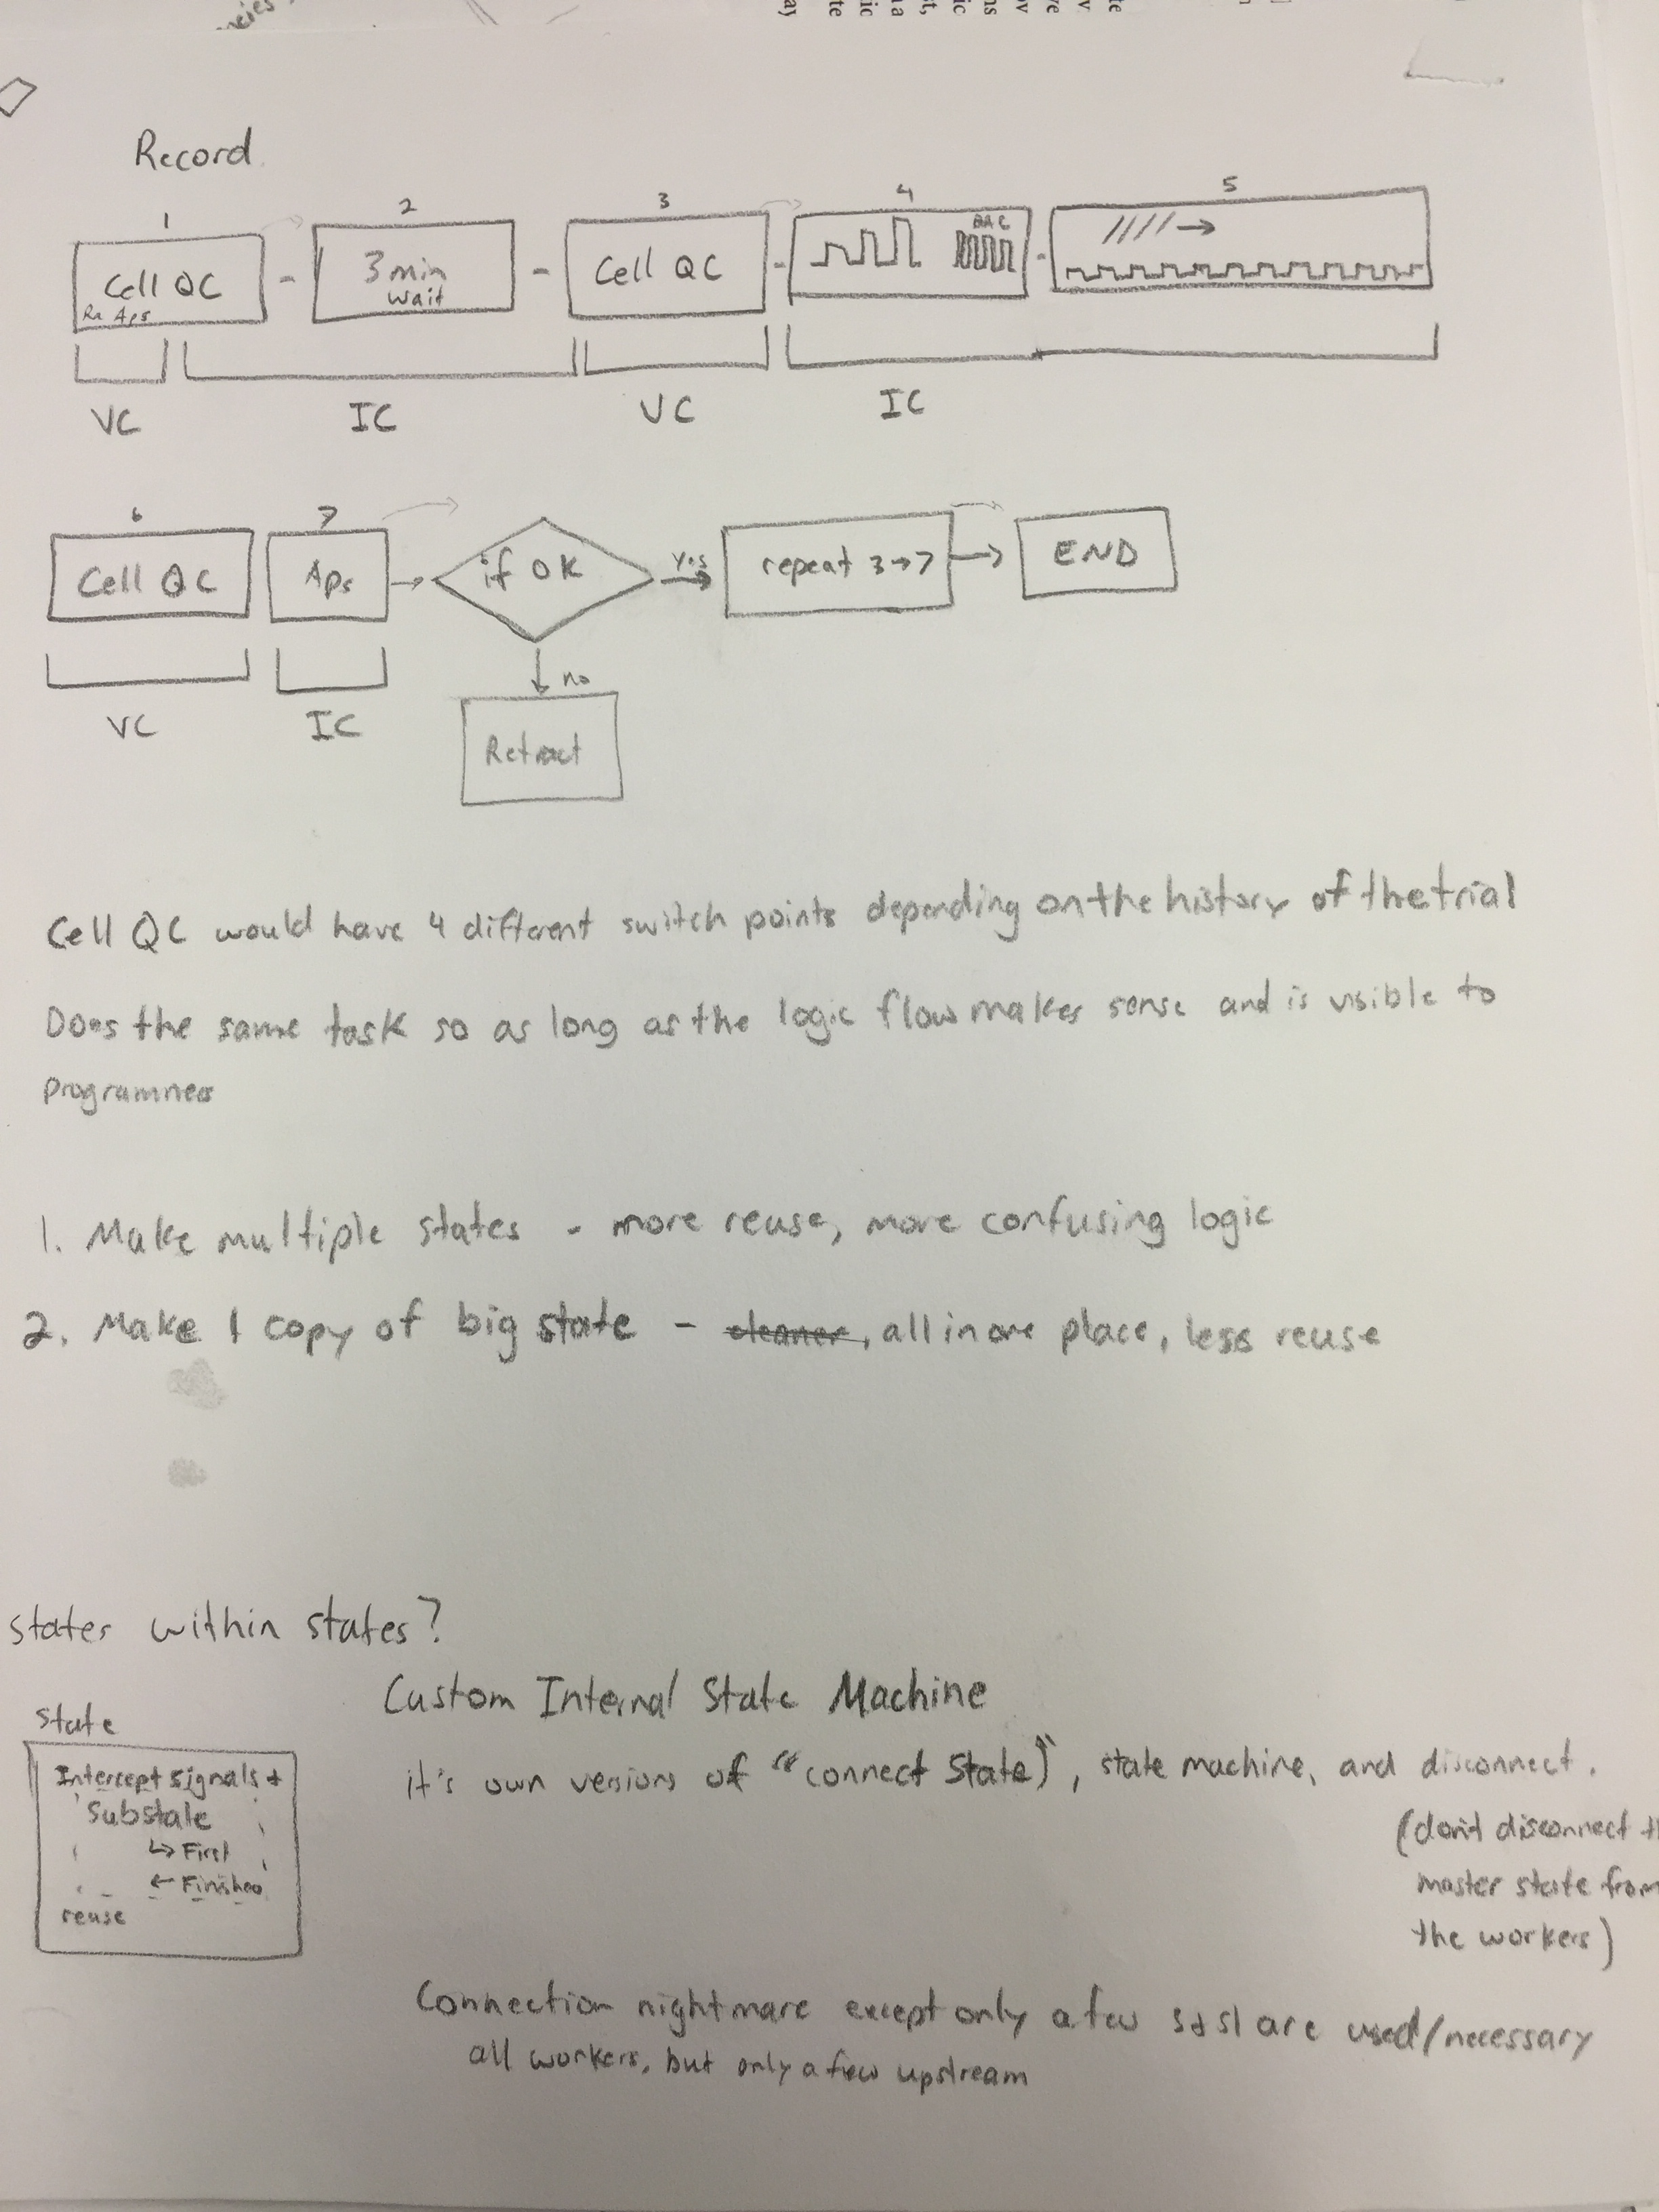 Record
1
2
3
4
5
Cell QC
Ra Aps
3 min
wait
Cell QC
VC
IC
VC
IC
6
7
Cell QC
Aps
if OK
yes
repeat 3→7
END
no
Retract
VC
IC
Cell QC would have 4 different switch points depending on the history of the trial
Does the same task so as long as the logic flow makes sense and is visible to
Programmers
1. Make multiple states - more reuse, more confusing logic
2. Make 1 copy of big state - cleaner, all in one place, less reuse
states within states?
Custom Internal State Machine
state
Intercept signals +
Substate
↳ First
← Finished
reuse
it's own versions of "connect State)", state machine, and disconnect.
(don't disconnect
master state from
the workers)
Connection nightmare except only a few s+sl are used/necessary
all workers, but only a few upstream